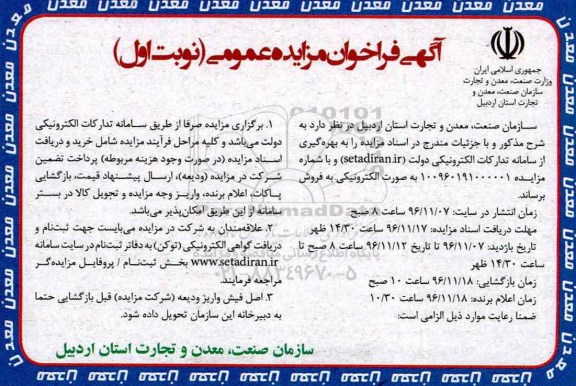 جمهوری اسلامی ایران
وزارت صنعت، معدن و تجارت
سازمان صنعت، معدن و
تجارت استان اردبیل
آگهی فراخوان مزایده عمومی (نوبت اول)
سازمان صنعت، معدن و تجارت استان اردبیل در نظر دارد به
شرح مذکور و با جزئیات مندرج در اسناد مزایده را به بهره‌گیری
از سامانه تدارکات الکترونیکی دولت (setadiran.ir) و با شماره
مزایده ۱۰۰۹۶۰۱۹۱۰۰۰۰۰۱ به صورت الکترونیکی به فروش
برساند.
زمان انتشار در سایت: ۹۶/۱۱/۰۷ ساعت ۸ صبح
مهلت دریافت اسناد مزایده: ۹۶/۱۱/۱۷ ساعت ۱۴/۳۰ ظهر
تاریخ بازدید: ۹۶/۱۱/۰۷ تا تاریخ ۹۶/۱۱/۱۲ ساعت ۸ صبح تا
ساعت ۱۴/۳۰ ظهر
زمان بازگشایی: ۹۶/۱۱/۱۸ ساعت ۱۰ صبح
زمان اعلام برنده: ۹۶/۱۱/۱۸ ساعت ۱۰/۳۰
ضمنا رعایت موارد ذیل الزامی است:
۱. برگزاری مزایده صرفا از طریق سامانه تدارکات الکترونیکی
دولت می‌باشد و کلیه مراحل فرآیند مزایده شامل خرید و دریافت
اسناد مزایده (در صورت وجود هزینه مربوطه) پرداخت تضمین
شرکت در مزایده (ودیعه)، ارسال پیشنهاد قیمت، بازگشایی
پاکات، اعلام برنده، واریز وجه مزایده و تحویل کالا در بستر
سامانه از این طریق امکان‌پذیر می‌باشد.
۲. علاقمندان به شرکت در مزایده می‌بایست جهت ثبت‌نام و
دریافت گواهی الکترونیکی (توکن) به دفاتر ثبت‌نام در سایت سامانه
www.setadiran.ir بخش ثبت‌نام / پروفایل مزایده‌گر
مراجعه فرمایند.
۳. اصل فیش واریز ودیعه (شرکت مزایده) قبل بازگشایی حتما
به دبیرخانه این سازمان تحویل داده شود.
سازمان صنعت، معدن و تجارت استان اردبیل